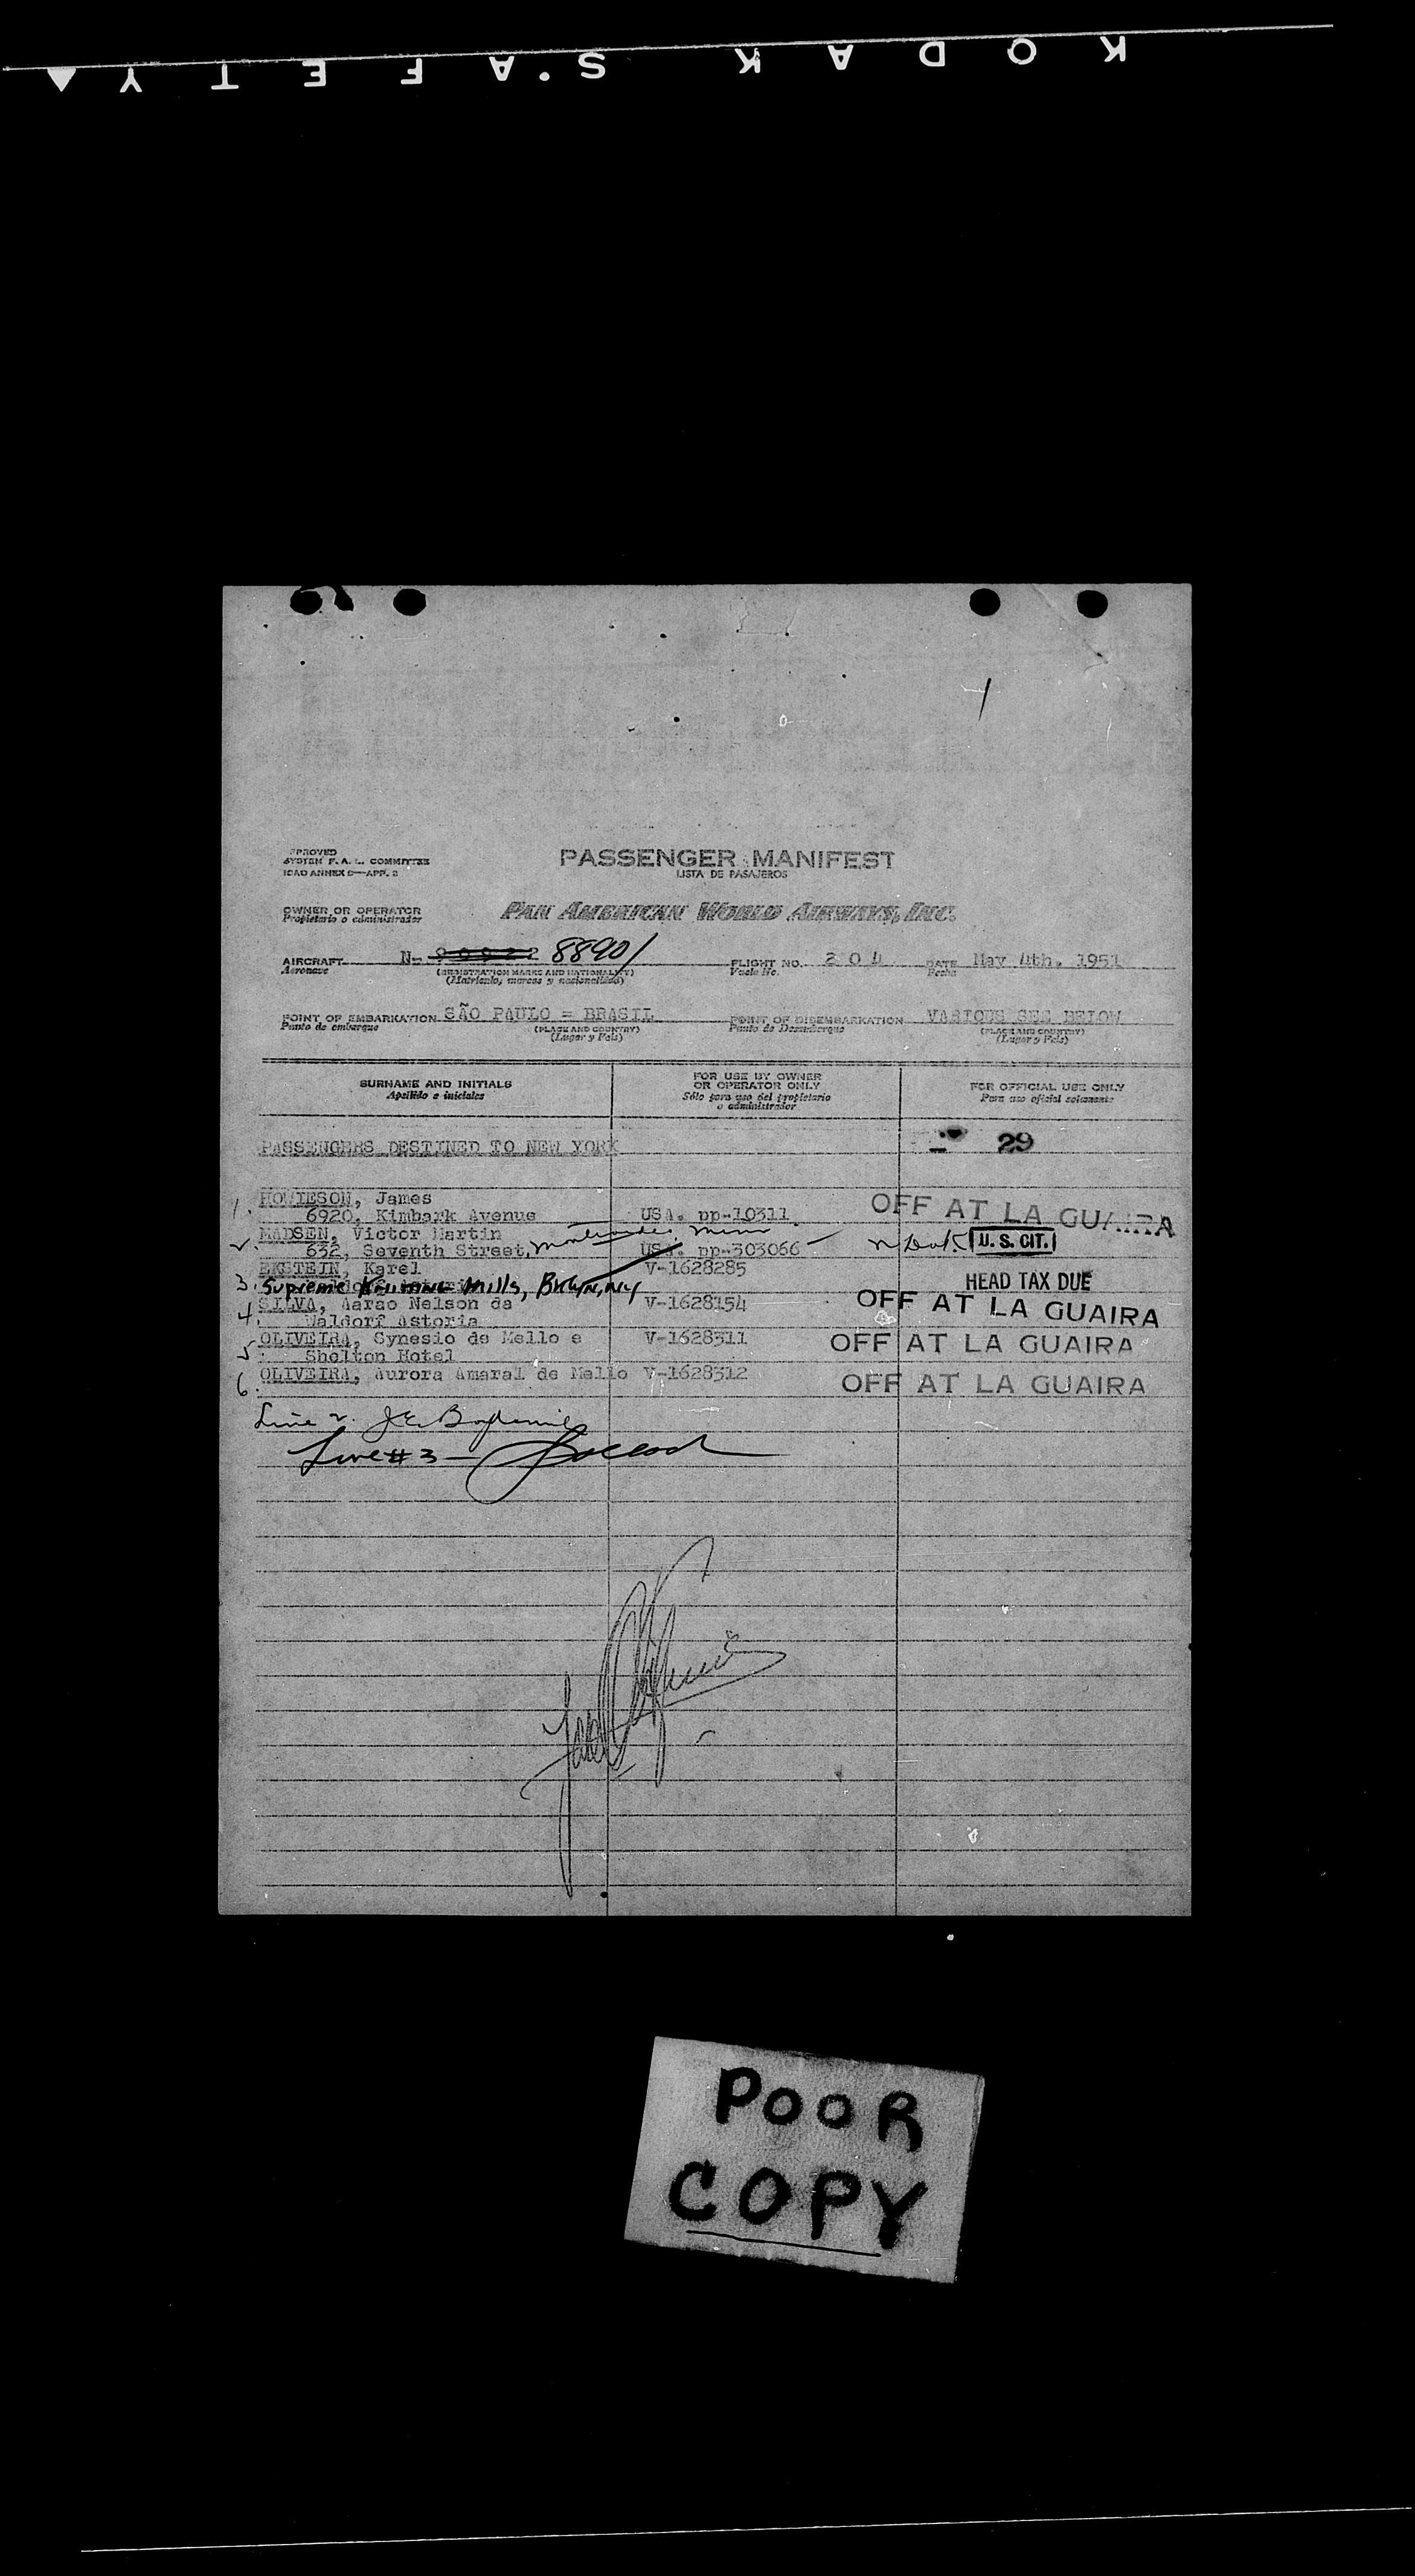 KODAK S.AFETY
PASSENGER MANIFEST
LISTA DE PASAJEROS
SYSTEM F. A. L. COMMITTEE
ICAO ANNEX 9—APP. 2
OWNER OR OPERATOR PAN AMERICAN WORLD AIRWAYS, INC.
Propietario o administrador
AIRCRAFT N- 88901 FLIGHT NO. 204 DATE May 4th. 1951
Aeronave (REGISTRATION MARKS AND NATIONALITY) Vuelo No. Fecha
(Matrícula, marcas y nacionalidad)
POINT OF EMBARKATION SÃO PAULO = BRASIL POINT OF DISEMBARKATION VARIOUS SEE BELOW
Punto de embarque (PLACE AND COUNTRY) Punto de Desembarque (PLACE AND COUNTRY)
(Lugar y País) (Lugar y País)
SURNAME AND INITIALS FOR USE BY OWNER OR OPERATOR ONLY FOR OFFICIAL USE ONLY
Apellido e iniciales Sólo para uso del propietario o administrador Para uso oficial solamente
PASSENGERS DESTINED TO NEW YORK 29
1. HOWIESON, James
6920, Kimbark Avenue USA. pp-10311 OFF AT LA GUAIRA
2. MADSEN, Victor Martin
632, Seventh Street, Montevideo, Minn USA. pp-303066 U. S. CIT.
EKSTEIN, Karel V-1628285
3. Supreme Knitting Mills, Bklyn, NY HEAD TAX DUE
4. SILVA, Aarao Nelson da V-1628154 OFF AT LA GUAIRA
Waldorf Astoria
5. OLIVEIRA, Synesio de Mello e V-1628311 OFF AT LA GUAIRA
Shelton Hotel
6. OLIVEIRA, Aurora Amaral de Mello V-1628312 OFF AT LA GUAIRA
Line 2. J.E.
Line #3 —
POOR
COPY